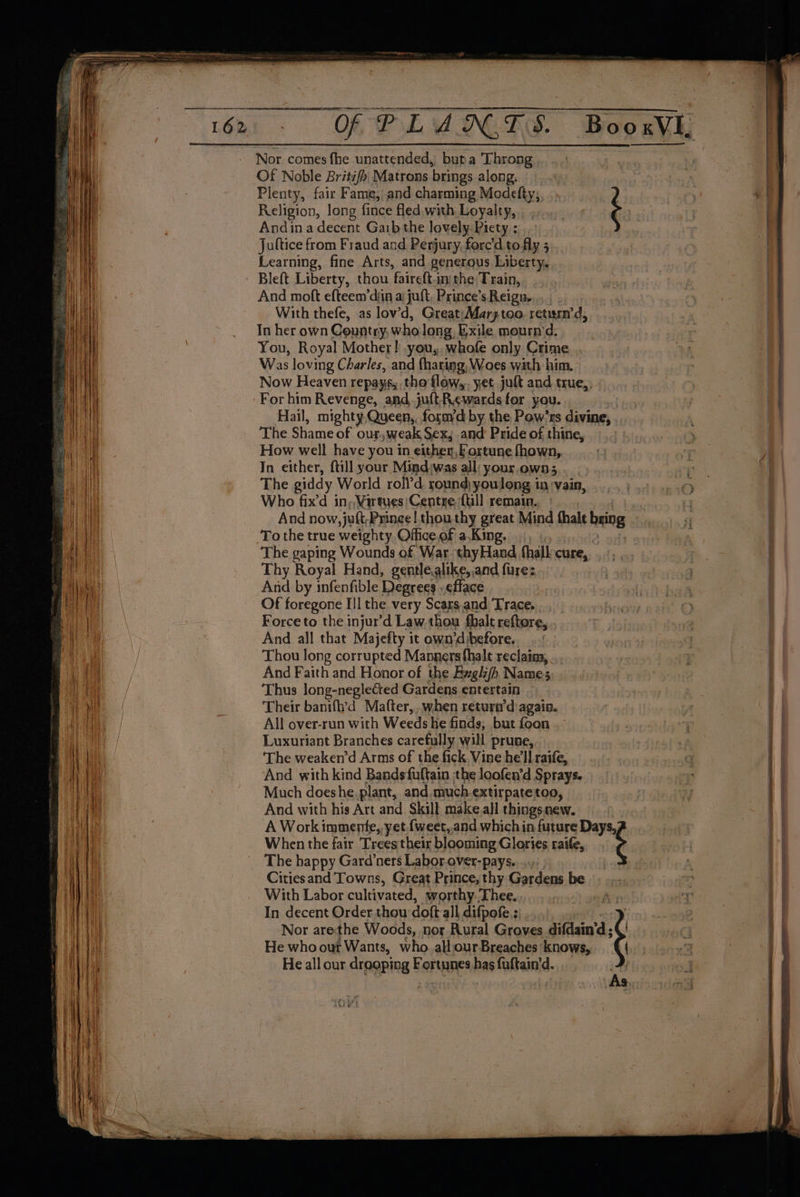 162 Of PLANTS. BOOK VI.
Nor comes ſhe unattended, but a Throng
Of Noble Britiſh Matrons brings along.
Plenty, fair Fame, and charming Modeſty,
Religion, long ſince fled with Loyalty,
And in a decent Garb the lovely Piety:
Juſtice from Fraud and Perjury forc'd to fly;
Learning, fine Arts, and generous Liberty.
Bleſt Liberty, thou faireſt in the Train,
And moſt eſteem'd in a juſt Prince's Reign.
With theſe, as lov'd, Great Mary too return'd,
In her own Country, who long Exile mourn'd.
You, Royal Mother! you, whoſe only Crime
Was loving Charles, and ſharing Woes with him.
Now Heaven repays, tho ſlow, yet juſt and true,
For him Revenge, and juſt Rewards for you.
Hail, mighty Queen, form'd by the Pow'rs divine,
The Shame of our weak Sex, and Pride of thine,
How well have you in either Fortune ſhown,
In either, ſtill your Mind was all your own;
The giddy World roll'd round you long in vain,
Who fix'd in Virtues Centre ſtill remain.
And now, juſt Prince! thou thy great Mind ſhalt bring
To the true weighty Office of a King.
The gaping Wounds of War thy Hand ſhall cure,
Thy Royal Hand, gentle alike, and ſure:
And by inſenſible Degrees efface
Of foregone Ill the very Scars and Trace.
Force to the injur'd Law thou ſhalt reſtore,
And all that Majeſty it own'd before.
Thou long corrupted Manners ſhalt reclaim,
And Faith and Honor of the Engliſh Name;
Thus long-neglected Gardens entertain
Their baniſh'd Maſter, when return'd again.
All over-run with Weeds he finds, but ſoon
Luxuriant Branches carefully will prune,
The weaken'd Arms of the ſick Vine he'll raiſe,
And with kind Bands ſuſtain the looſen'd Sprays.
Much does he plant, and much extirpate too,
And with his Art and Skill make all things new.
A Work immenſe, yet ſweet, and which in future Days,
When the fair Trees their blooming Glories raiſe,
The happy Gard'ners Labor over-pays.
Cities and Towns, Great Prince, thy Gardens be
With Labor cultivated, worthy Thee.
In decent Order thou doſt all diſpoſe:
Nor are the Woods, nor Rural Groves diſdain'd;
He who our Wants, who all our Breaches knows,
He all our drooping Fortunes has ſuſtain'd.
As